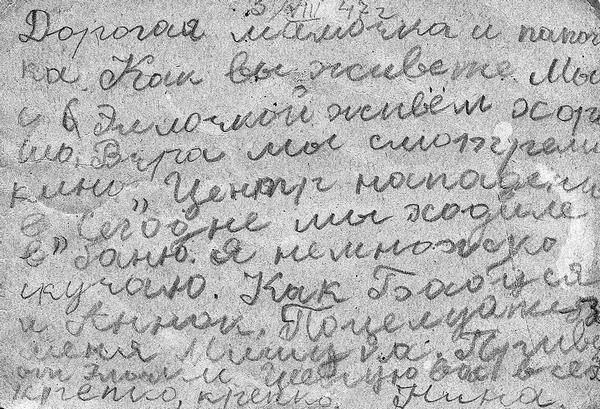 3 VIII 42 г
Дорогая мамочка и папоч
ка. Как вы живете. Мы
с Эллочкой живём хоро
шо. Вчра мы смотрели
кино "Центр нападени
я". Сегодне мы ходиле
в баню. Я немножко
скучаю. Как Бабуся
и Аннак. Поцелуй за
меня Мишука. Привет
от Эллы и Целую вас всех
крепко, крепко. Нина.